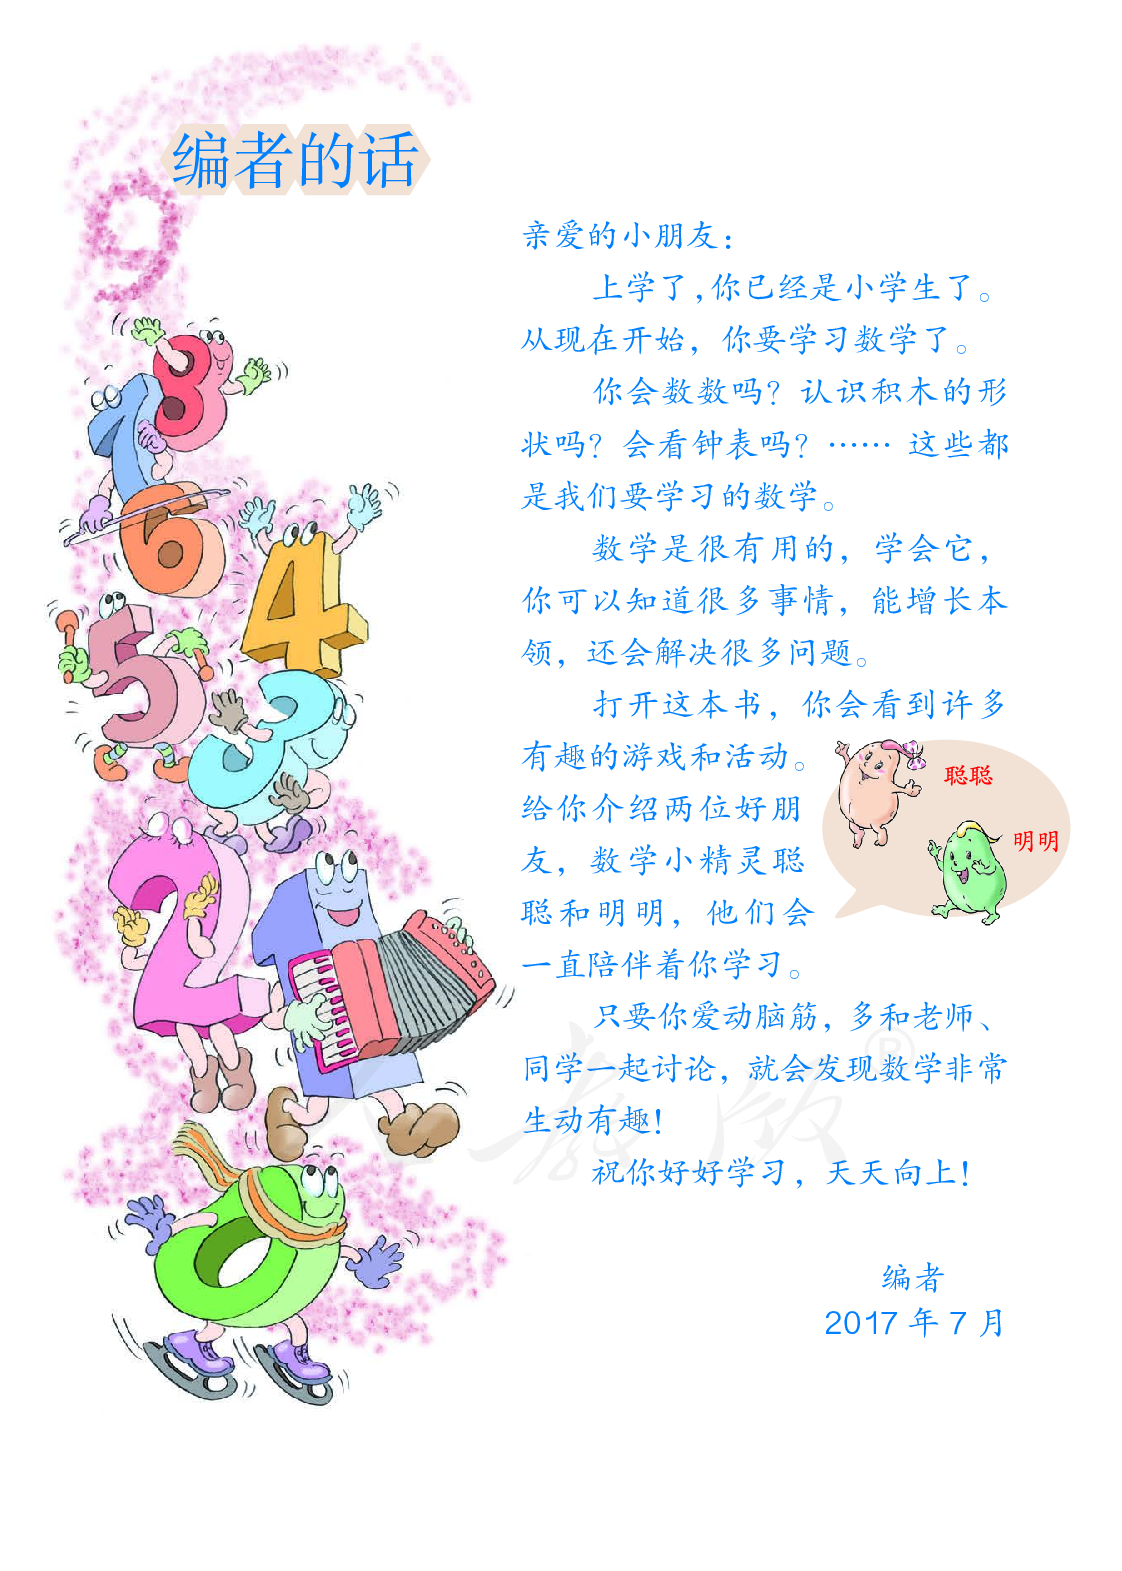 编者的话
亲爱的小朋友：
上学了，你已经是小学生了。
从现在开始，你要学习数学了。
你会数数吗？认识积木的形
状吗？会看钟表吗？…… 这些都
是我们要学习的数学。
数学是很有用的，学会它，
你可以知道很多事情，能增长本
领，还会解决很多问题。
打开这本书，你会看到许多
有趣的游戏和活动。
给你介绍两位好朋
友，数学小精灵聪
聪和明明，他们会
一直陪伴着你学习。
聪聪
明明
只要你爱动脑筋，多和老师、
同学一起讨论，就会发现数学非常
生动有趣！
祝你好好学习，天天向上！
编者
2017 年 7 月
9
8
7
6
4
5
3
2
1
0
人教版®